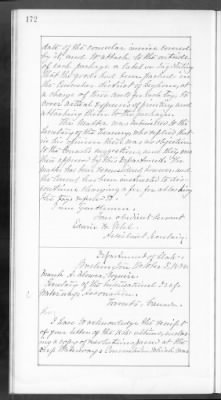 172
date of the consular invoice covered
by it, and to attach to the outside
of each package a label certifying
that the goods had been packed in
the Consular district of
a charge of five cents for each tag to
cover actual expenses of printing and
attaching them to the packages.
This matter was submitted to the
Secretary of the Treasury, who replied that
in his opinion there was no objection
to the Consul's suggestion, and they were
then approved by this Department. The
matter has been reconsidered however, and
the Consul has been instructed to dis-
continue charging a fee for attaching
the tags
I am Gentlemen,
Your obedient Servant
Edwin F. Uhl
Assistant Secretary.
Department of State.
Washington,
Frank A. Flower, Esquire
Secretary of the International Deep
Waterways Association.
Toronto, Canada.
Sir,
I have to acknowledge the receipt
of your letter of the ultimo, enclos-
ing a copy of resolutions passed at the
Deep Waterways Convention which was